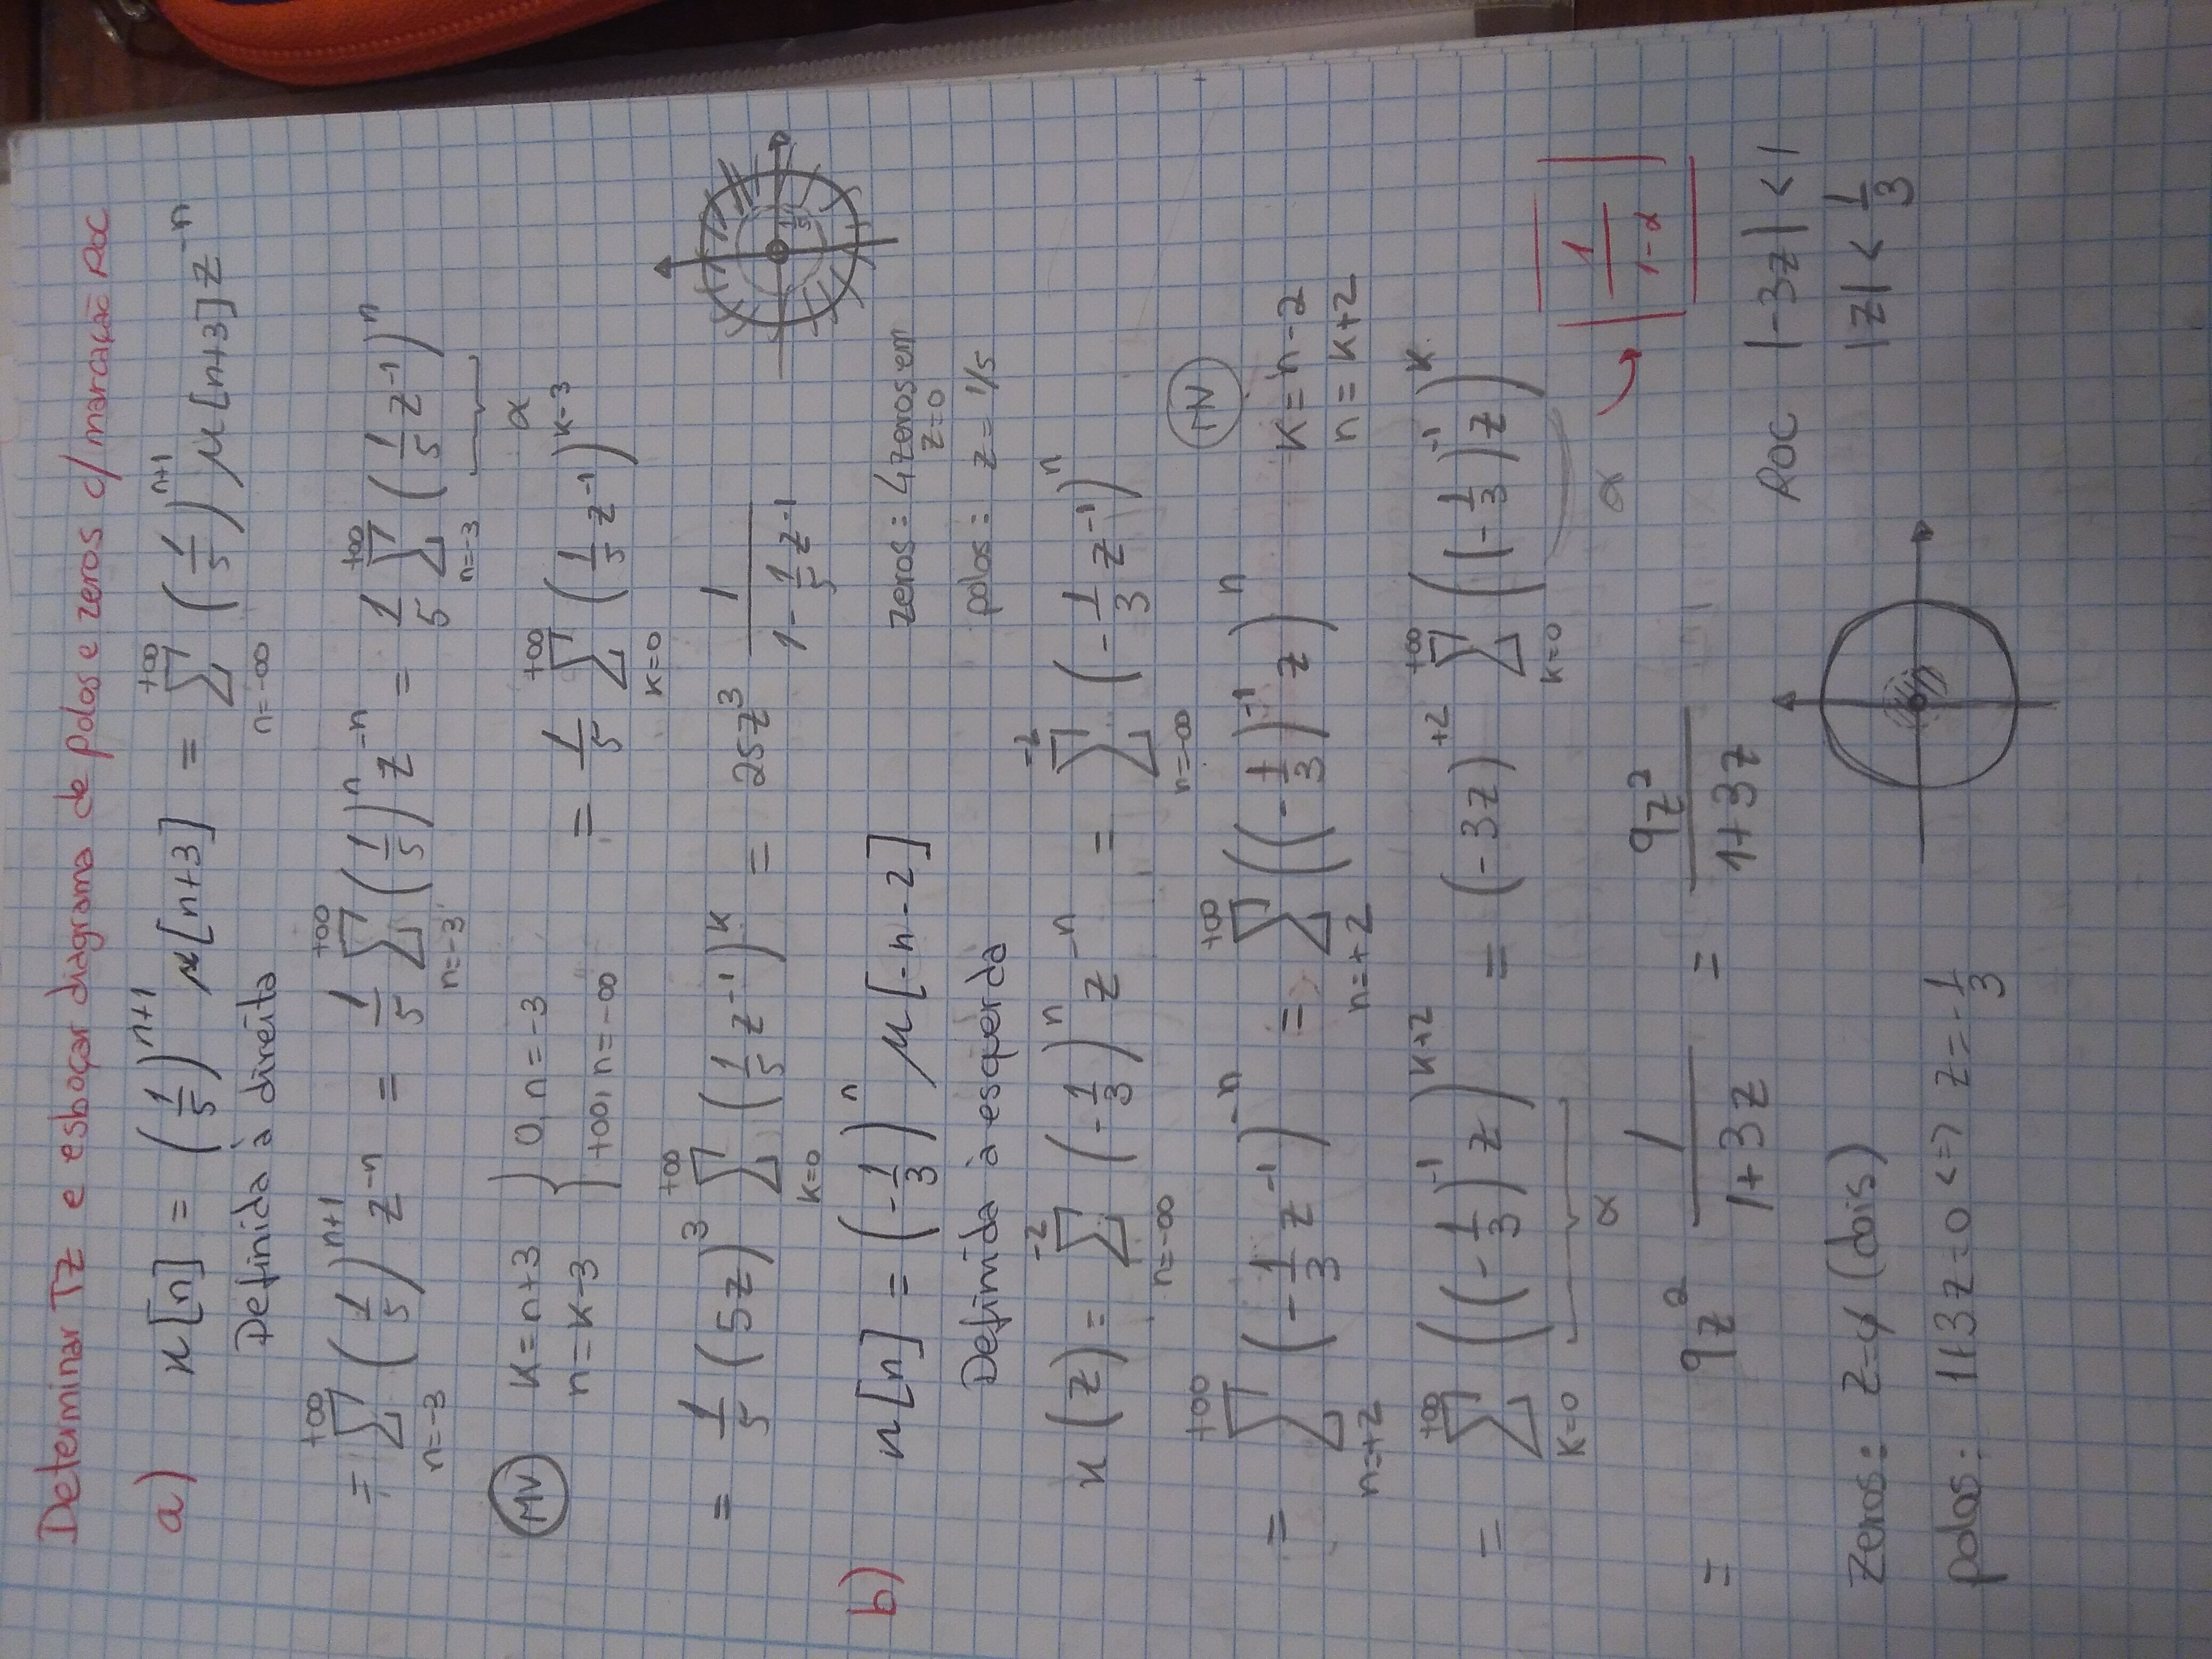 Determinar TZ e esboçar diagrama de polos e zeros c/ marcação ROC
a) x[n] = (1/5)^{n+1} μ[n+3] = Σ_{n=-∞}^{+∞} (1/5)^{n+1} μ[n+3] z^{-n}
Definida à direita
= Σ_{n=-3}^{+∞} (1/5)^{n+1} z^{-n} = 1/5 Σ_{n=-3}^{+∞} (1/5)^n z^{-n} = 1/5 Σ_{n=-3}^{+∞} (1/5 z^{-1})^n
α
MV K=n+3 } 0, n=-3
n=k-3 +∞, n=-∞
= 1/5 Σ_{k=0}^{+∞} (1/5 z^{-1})^{k-3}
= 1/5 (5z)^3 Σ_{k=0}^{+∞} (1/5 z^{-1})^k = 25z^3 1/(1-1/5 z^{-1})
1/5
zeros: 4 zeros em
z=0
polos: z = 1/5
b) x[n] = (-1/3)^n μ[-n-2]
Definida à esquerda
x(z) = Σ_{n=-∞}^{-2} (-1/3)^n z^{-n} = Σ_{n=-∞}^{-2} (-1/3 z^{-1})^n
= Σ_{n=+2}^{+∞} (-1/3 z^{-1})^{-n} = Σ_{n=+2}^{+∞} ((-1/3)^{-1} z)^n
K=n-2
n=k+2
= Σ_{k=0}^{+∞} ((-1/3)^{-1} z)^{k+2} = (-3z)^{+2} Σ_{k=0}^{+∞} ((-1/3)^{-1} z)^k
α α → 1/(1-α)
= 9z^2 1/(1+3z) = 9z^2/(1+3z)
ROC |-3z| < 1
|z| < 1/3
zeros: z=0 (dois)
polos: 1+3z=0 <=> z=-1/3